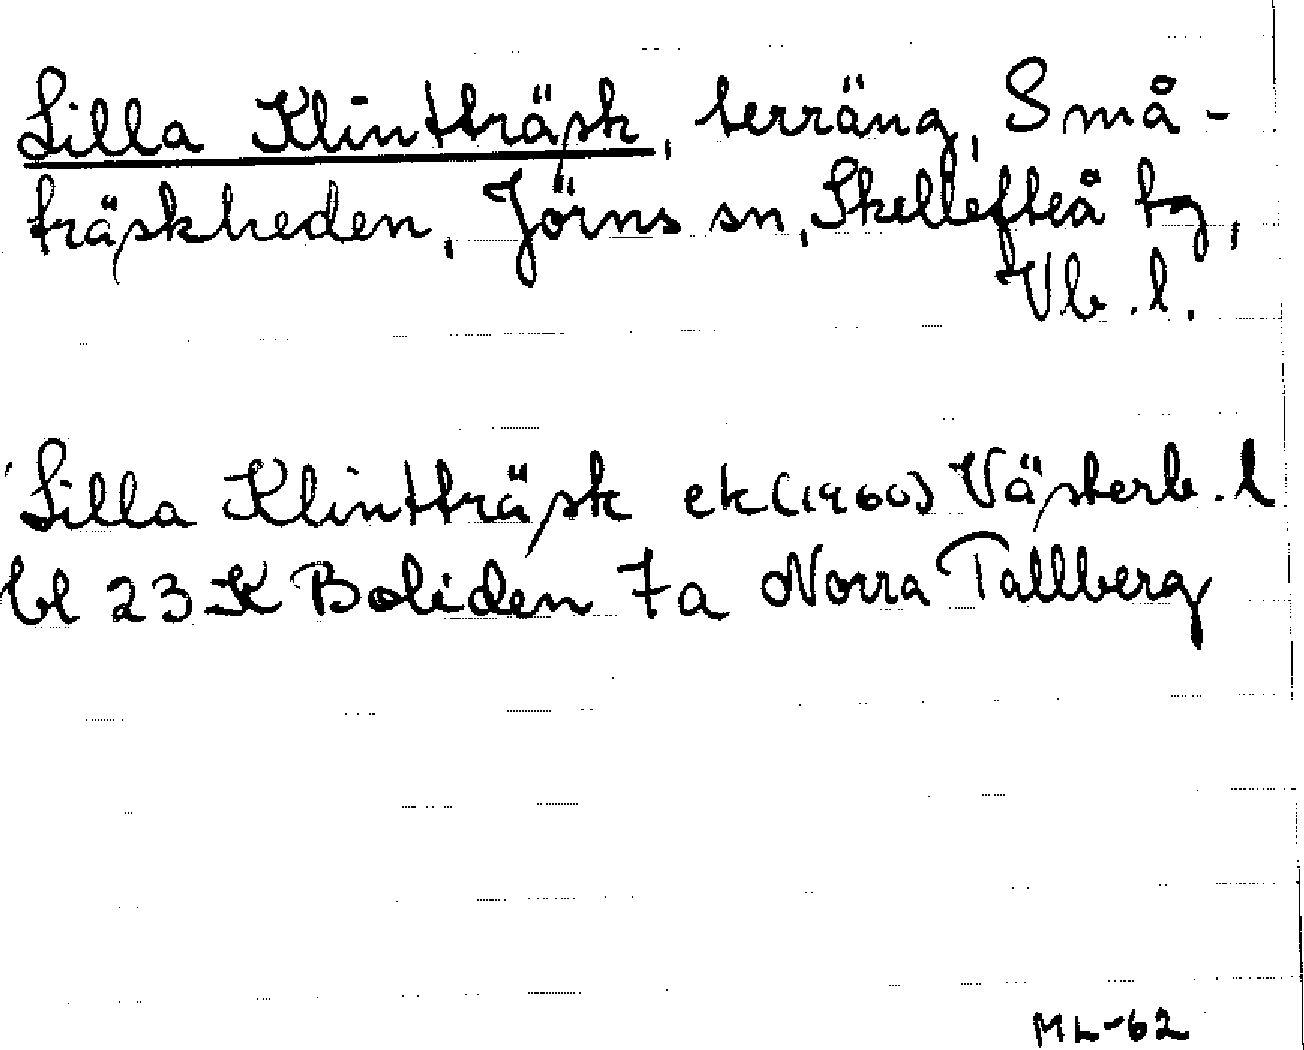 Lilla Klintträsk, terräng, Små-
träskheden, Jörns sn, Skellefteå tg,
Vb. l.
Lilla Klintträsk ek (1960) Västerb. l
bl 23 K Boliden 7a Norra Tallberg
ML-62